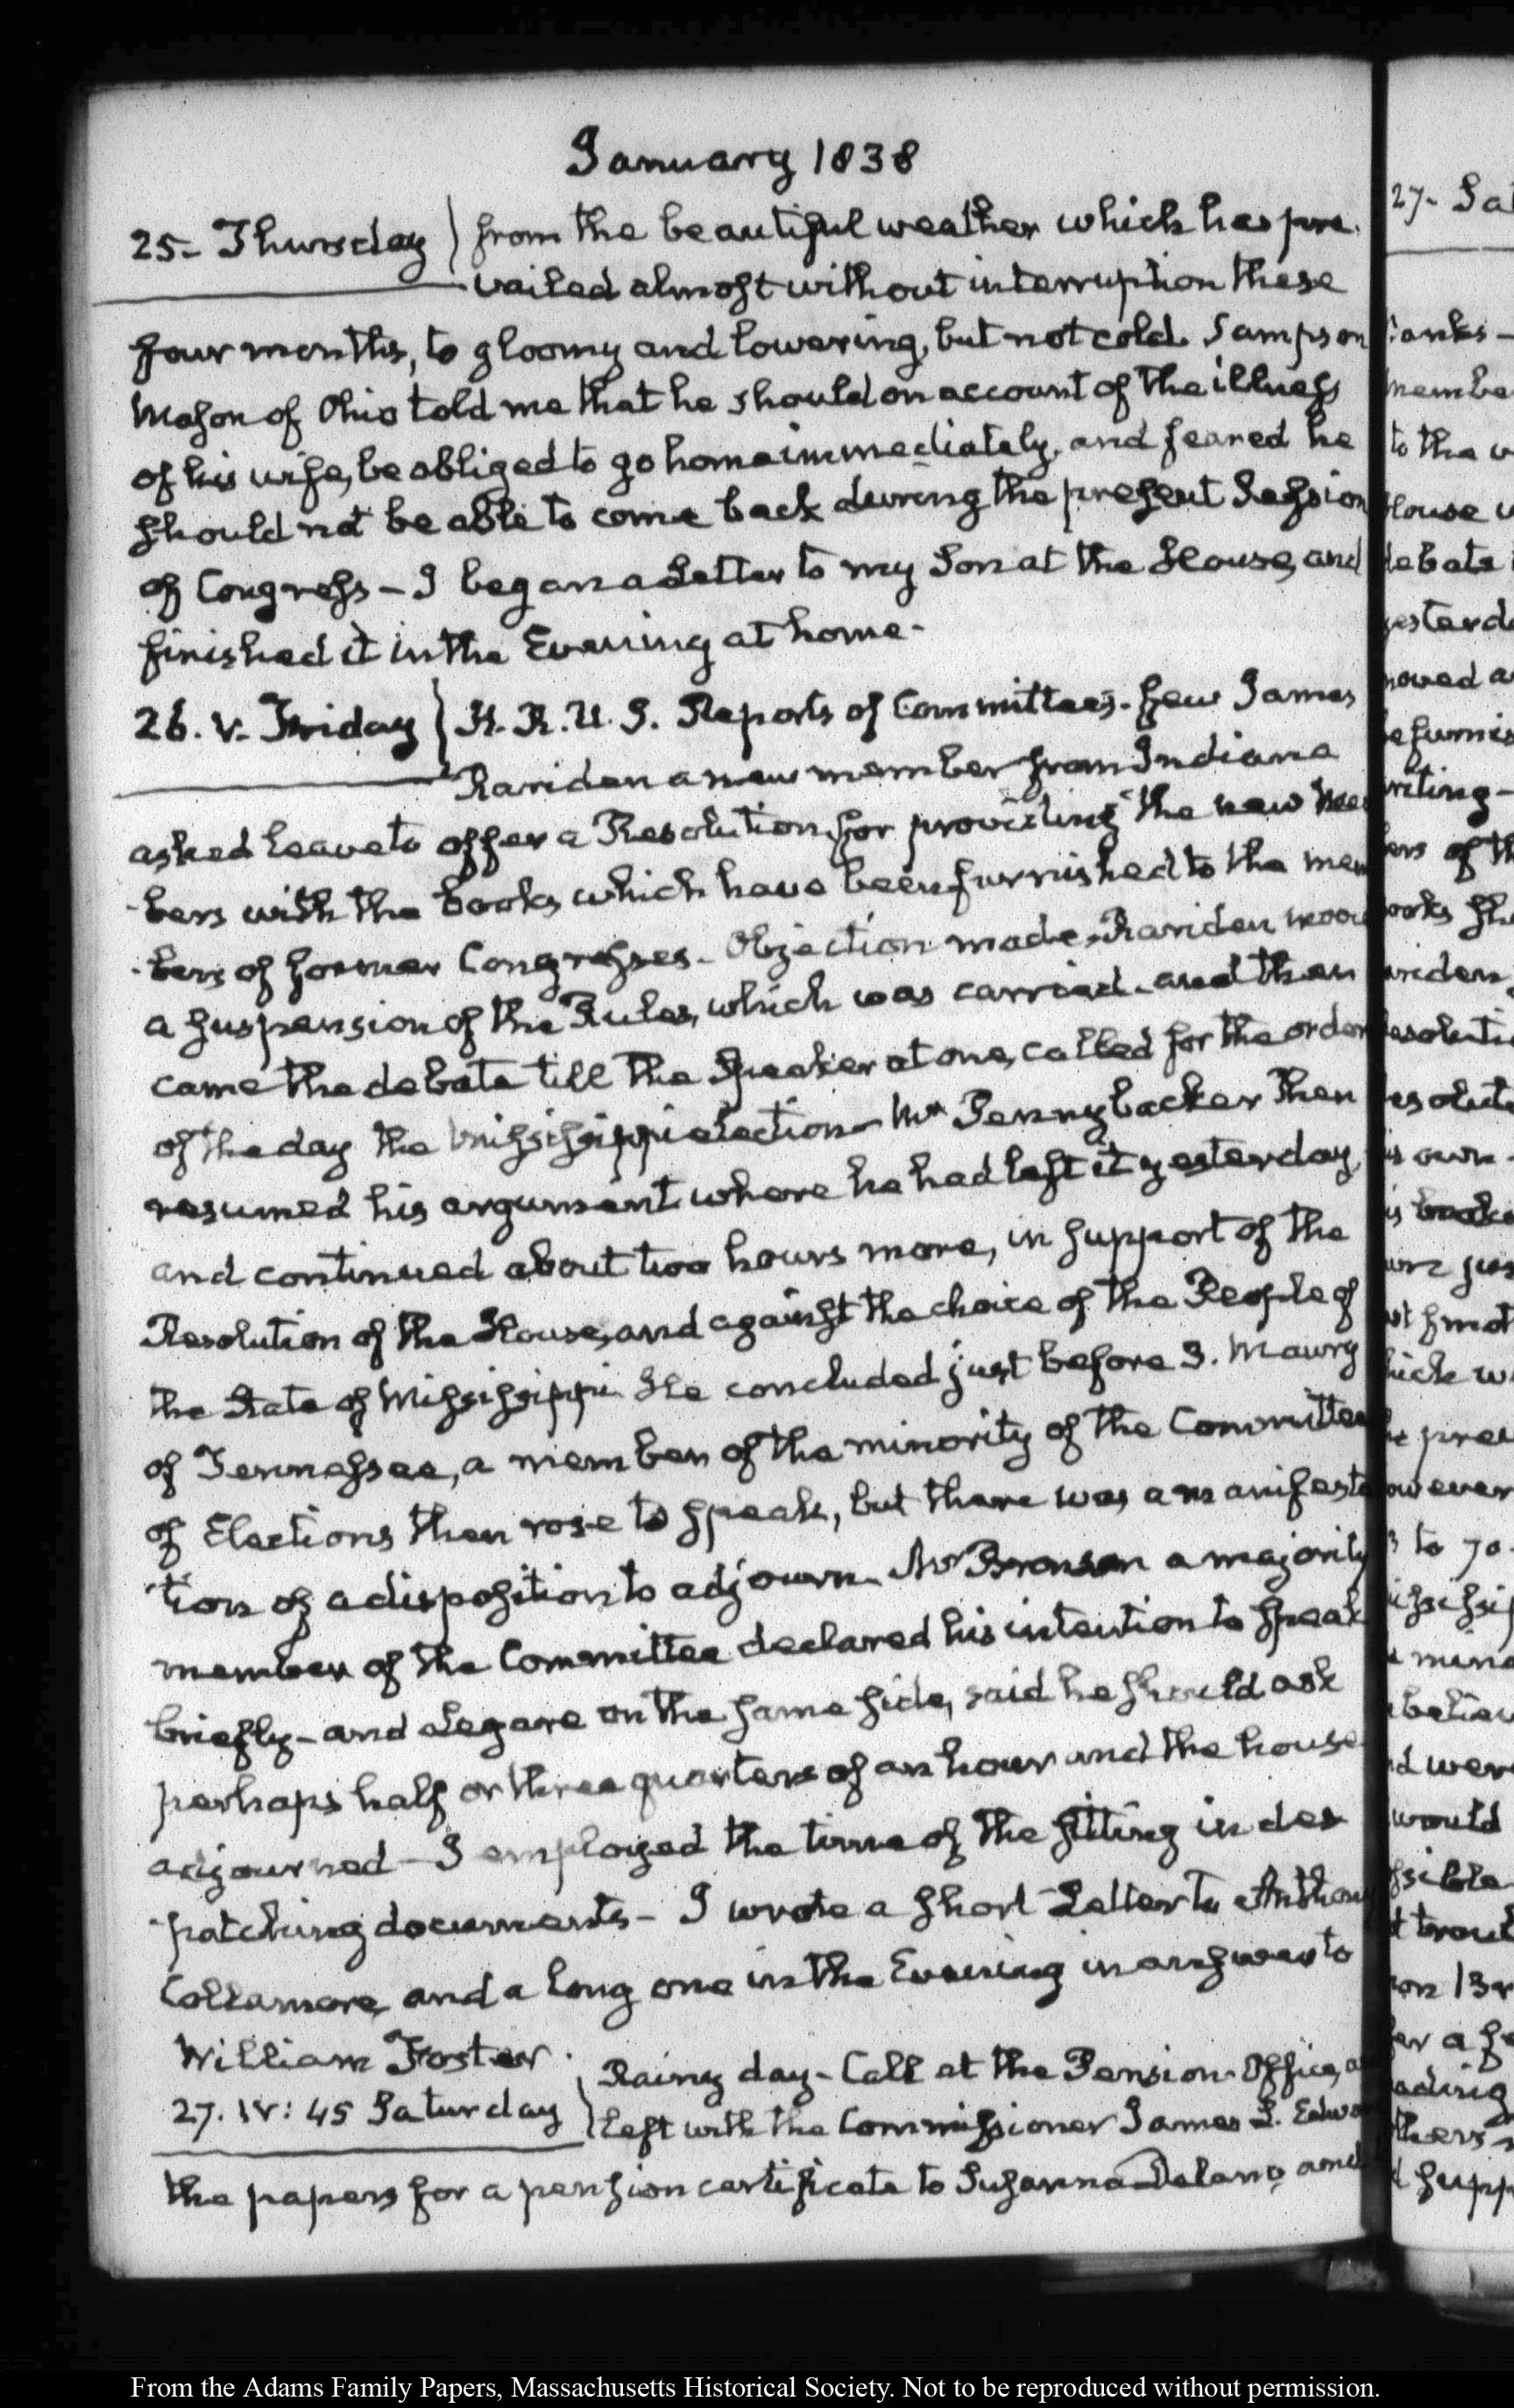 January 1838
25- Thursday } from the beautiful weather which has pre-
vailed almost without interruption these
four months, to gloomy and lowering, but not cold. Sampson
Mason of Ohio told me that he should on account of the illness
of his wife, be obliged to go home immediately, and feared he
should not be able to come back during the present Session
of Congress - I began a Letter to my Son at the House, and
finished it in the Evening at home-
26. V. Friday } H. R. U. S. Reports of Committees. few James
Rariden a new member from Indiana
asked leave to offer a Resolution for providing the new mem
-bers with the books which have been furnished to the mem
-bers of former Congresses - Objection made, Rariden moved
a suspension of the Rules, which was carried - and then
came the debate till the Speaker at one, called for the order
of the day the Mississippi election - Mr Pennybacker then
resumed his argument where he had left it yesterday,
and continued about two hours more, in support of the
Resolution of the House, and against the choice of the People of
the State of Mississippi. He concluded just before 3. Maury
of Tennessee, a member of the minority of the Committee
of Elections then rose to speak, but there was a manifesta
-tion of a disposition to adjourn. Mr Bronson a majority
member of the Committee declared his intention to speak
briefly - and Legare on the same side, said he should ask
perhaps half or three quarters of an hour and the house
adjourned - I employed the time of the sitting in des
-patching documents - I wrote a short Letter to Anthony
Collamore, and a long one in the Evening in answer to
William Foster.
27. IV: 45 Saturday } Rainy day - Call at the Pension Office, a
left with the Commissioner James L. Edwar
the papers for a pension certificate to Susanna Delano, and
27- Sat
From the Adams Family Papers, Massachusetts Historical Society. Not to be reproduced without permission.